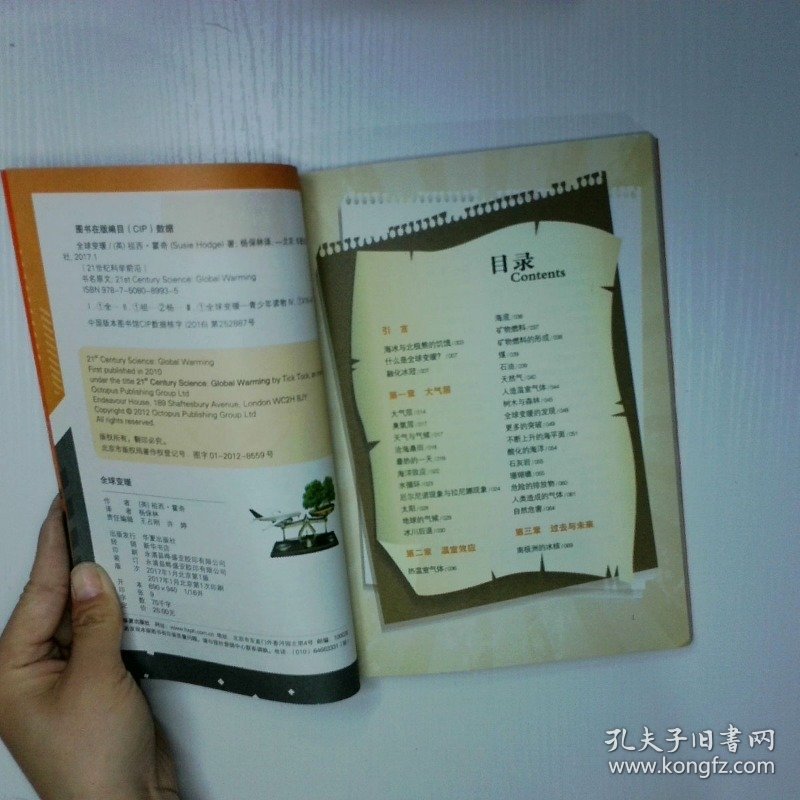 图书在版编目(CIP)数据
全球变暖/(英)祖西·霍奇(Susie Hodge)著;杨保林译.—北京:
社,2017.1
(21世纪科学前沿)
书名原文:21st Century Science: Global Warming
ISBN 978-7-5080-8993-5
Ⅰ.①全… Ⅱ.①祖… ②杨… Ⅲ.①全球变暖—青少年读物 Ⅳ.
中国版本图书馆CIP数据核字(2016)第252887号
21st Century Science: Global Warming
First published in 2010
under the title 21st Century Science: Global Warming by Tick Tock, an
Octopus Publishing Group Ltd
Endeavour House, 189 Shaftesbury Avenue, London WC2H 8JY
Copyright © 2012 Octopus Publishing Group Ltd
All rights reserved.
版权所有,翻印必究。
北京市版权局著作权登记号:图字01-2012-8559号
全球变暖
作 者 (英)祖西·霍奇
译 者 杨保林
责任编辑 王占刚 许 婷
出版发行 华夏出版社
经 销 新华书店
印 刷 永清县晔盛亚胶印有限公司
装 订 永清县晔盛亚胶印有限公司
版 次 2017年1月北京第1版
2017年1月北京第1次印刷
开 本 690×940 1/16开
张 9
字 数 70千字
定 价 26.80元
目录
Contents
引 言
海冰与北极熊的饥饿/003
什么是全球变暖?/007
融化冰冠/007
第一章 大气层
大气层/014
臭氧层/017
天气与气候/017
沧海桑田/018
最热的一天/019
海洋效应/022
水循环/023
厄尔尼诺现象与拉尼娜现象/024
太阳/028
地球的气候/029
冰川后退/030
第二章 温室效应
热温室气体/036
海底/036
矿物燃料/037
矿物燃料的形成/038
煤/039
石油/039
天然气/040
人造温室气体/044
树木与森林/045
全球变暖的发现/048
更多的突破/049
不断上升的海平面/051
酸化的海洋/054
石灰岩/055
珊瑚礁/055
危险的排放物/060
人类造成的气体/061
自然危害/064
第三章 过去与未来
南极洲的冰核/069
孔夫子旧书网
www.kongfz.com